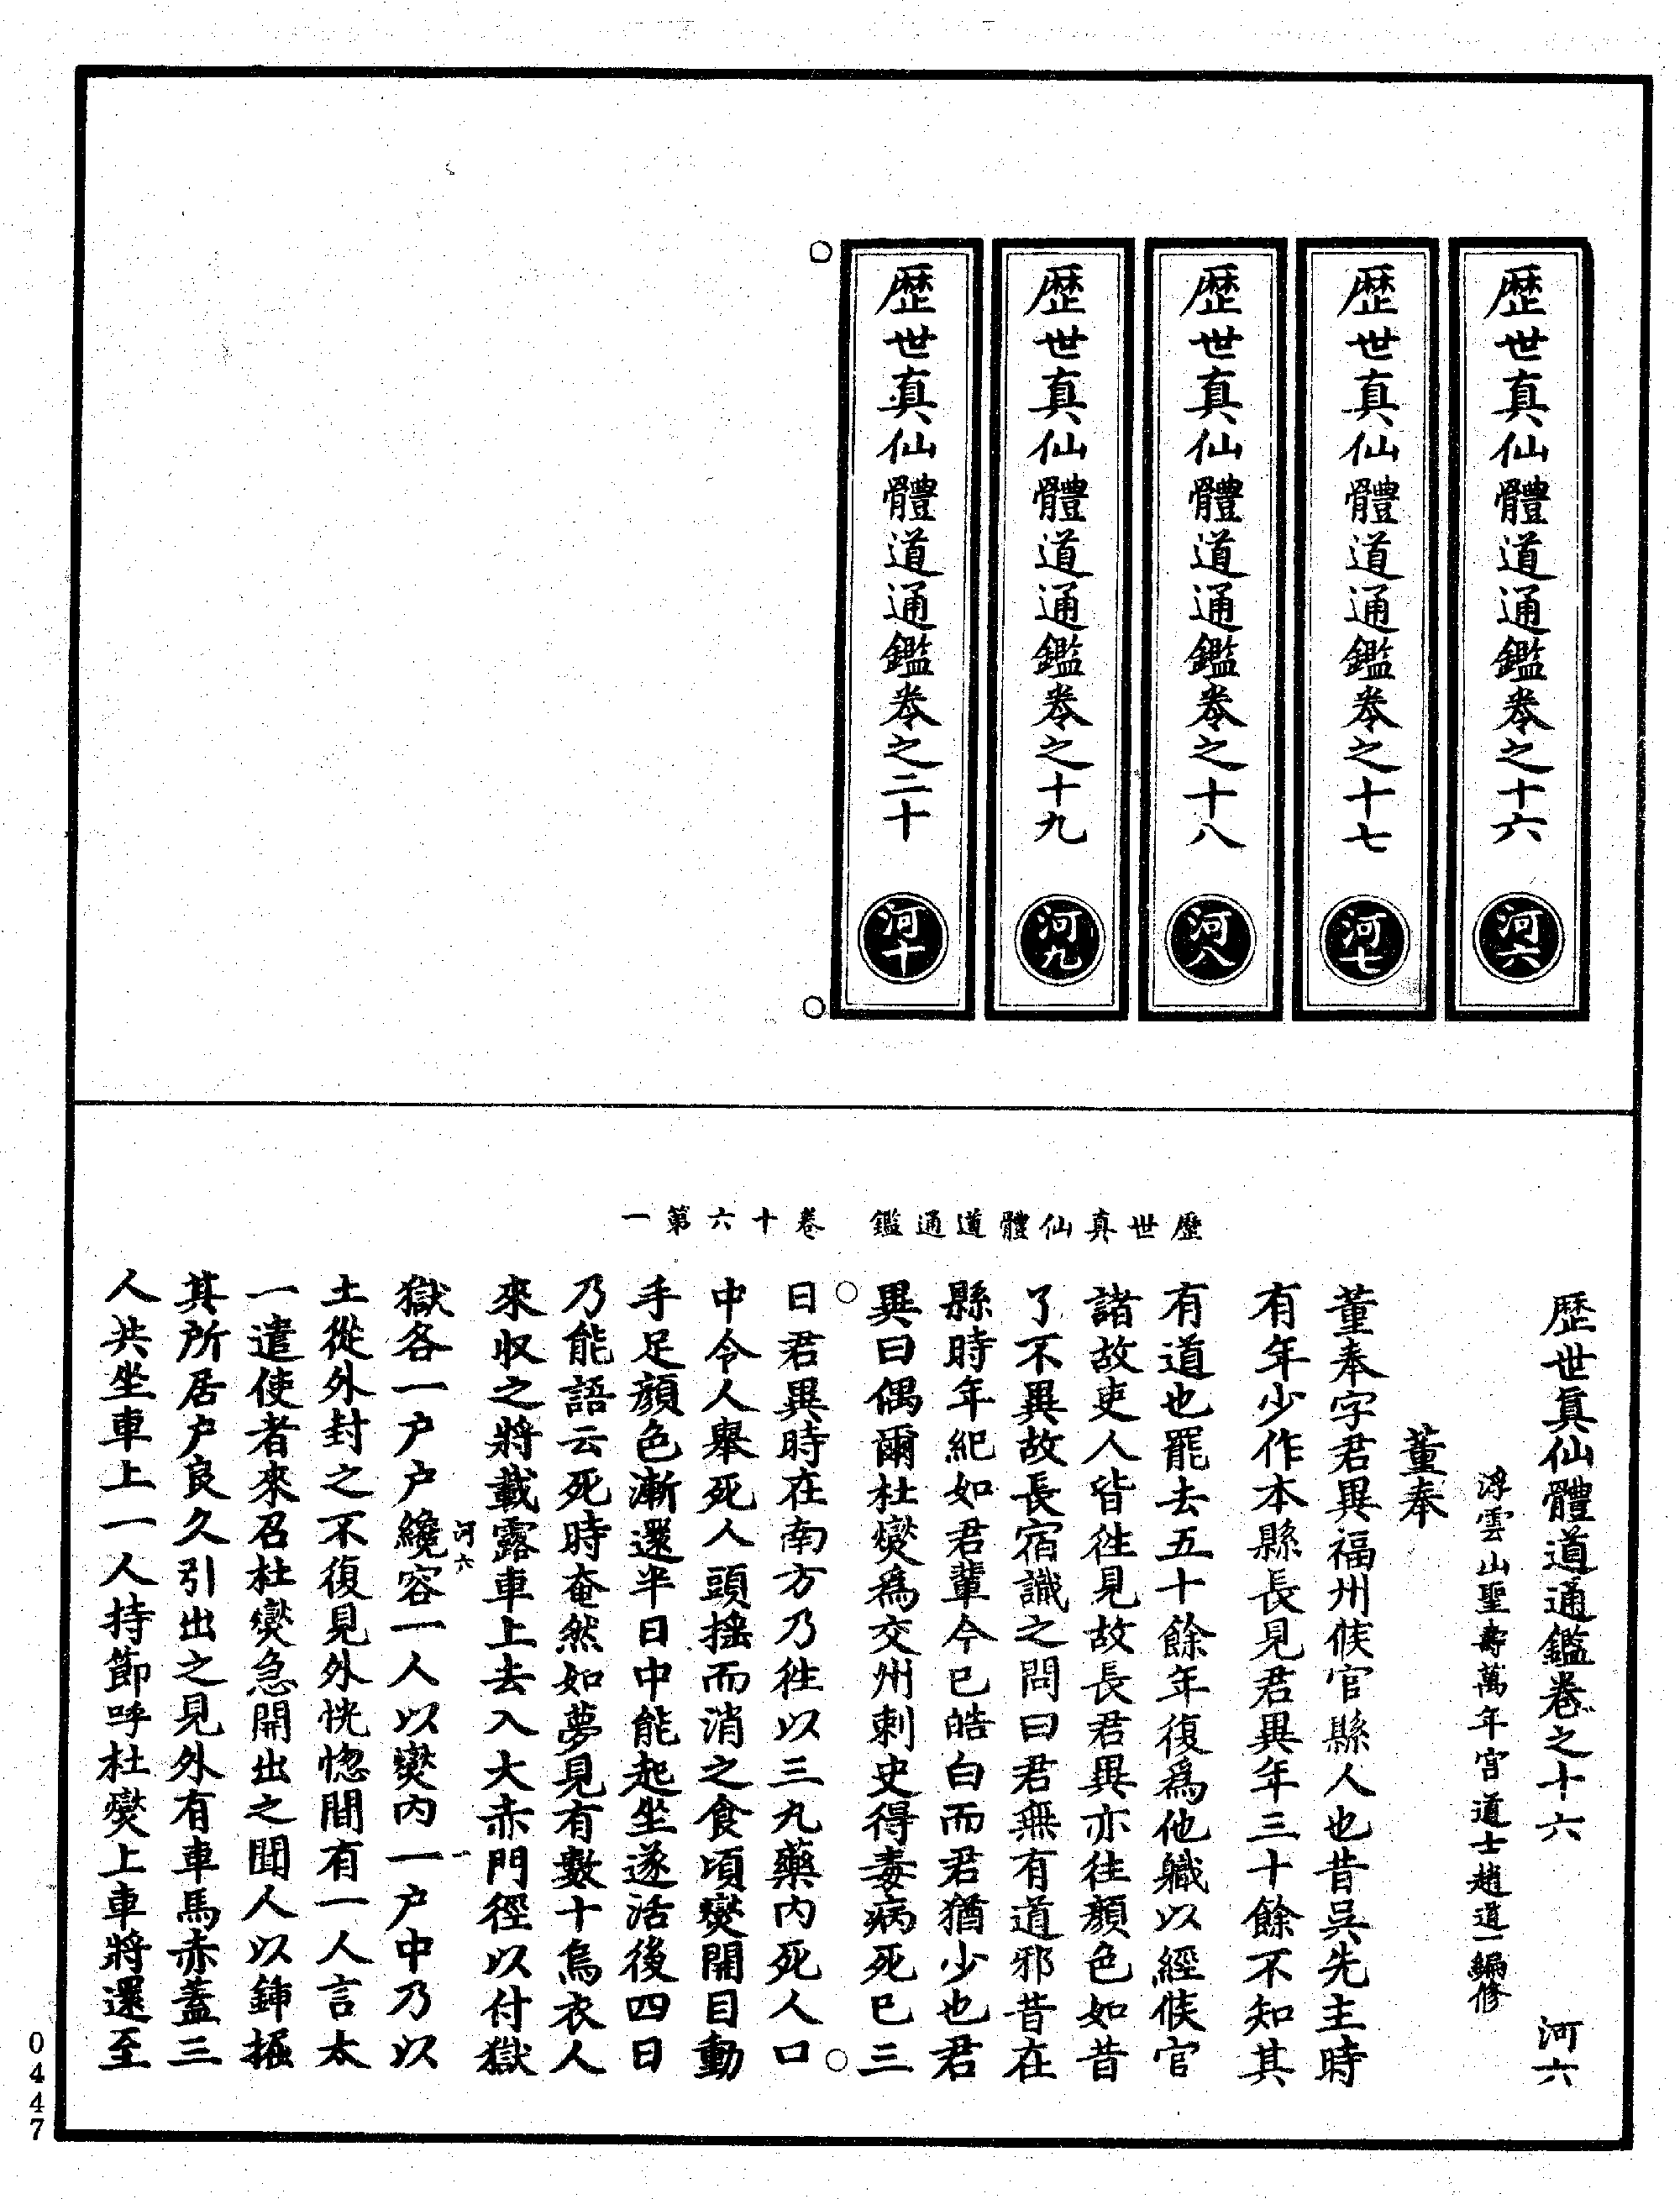 歷世真仙體道通鑑卷之十六
河六
歷世真仙體道通鑑卷之十七
河七
歷世真仙體道通鑑卷之十八
河八
歷世真仙體道通鑑卷之十九
河九
歷世真仙體道通鑑卷之二十
河十
歷世真仙體道通鑑 卷十六第一
歷世真仙體道通鑑卷之十六 河六
浮雲山聖壽萬年宮道士趙道一編修
董奉
董奉字君異福州候官縣人也昔吳先主時
有年少作本縣長見君異年三十餘不知其
有道也罷去五十餘年復爲他職以經候官
諸故吏人皆往見故長君異亦往顏色如昔
了不異故長宿識之問曰君無有道邪昔在
縣時年紀如君輩今已皓白而君猶少也君
異曰偶爾杜燮爲交州刺史得毒病死已三
日君異時在南方乃往以三丸藥內死人口
中令人舉死人頭搖而消之食頃燮開目動
手足顏色漸還半日中能起坐遂活後四日
乃能語云死時奄然如夢見有數十烏衣人
來收之將載露車上去入大赤門徑以付獄
河六 一
獄各一戶戶纔容一人以燮內一戶中乃以
土從外封之不復見外恍惚間有一人言太
一遣使者來召杜燮急開出之聞人以鍤掘
其所居戶良久引出之見外有車馬赤蓋三
人共坐車上一人持節呼杜燮上車將還至
0447